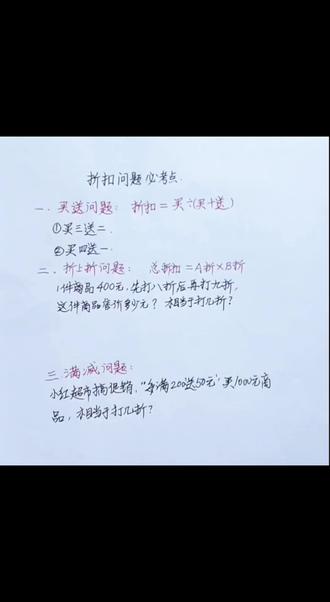 折扣问题必考点.
一.买送问题：折扣=买÷(买+送)
①买三送二.
②买四送一.
二.折上折问题：总折扣=A折×B折
1件商品400元，先打八折后再打九折，
这件商品售价多少元？相当于打几折？
三.满减问题：
小红超市搞促销，“每满200送50元”买1000元商
品，相当于打几折？